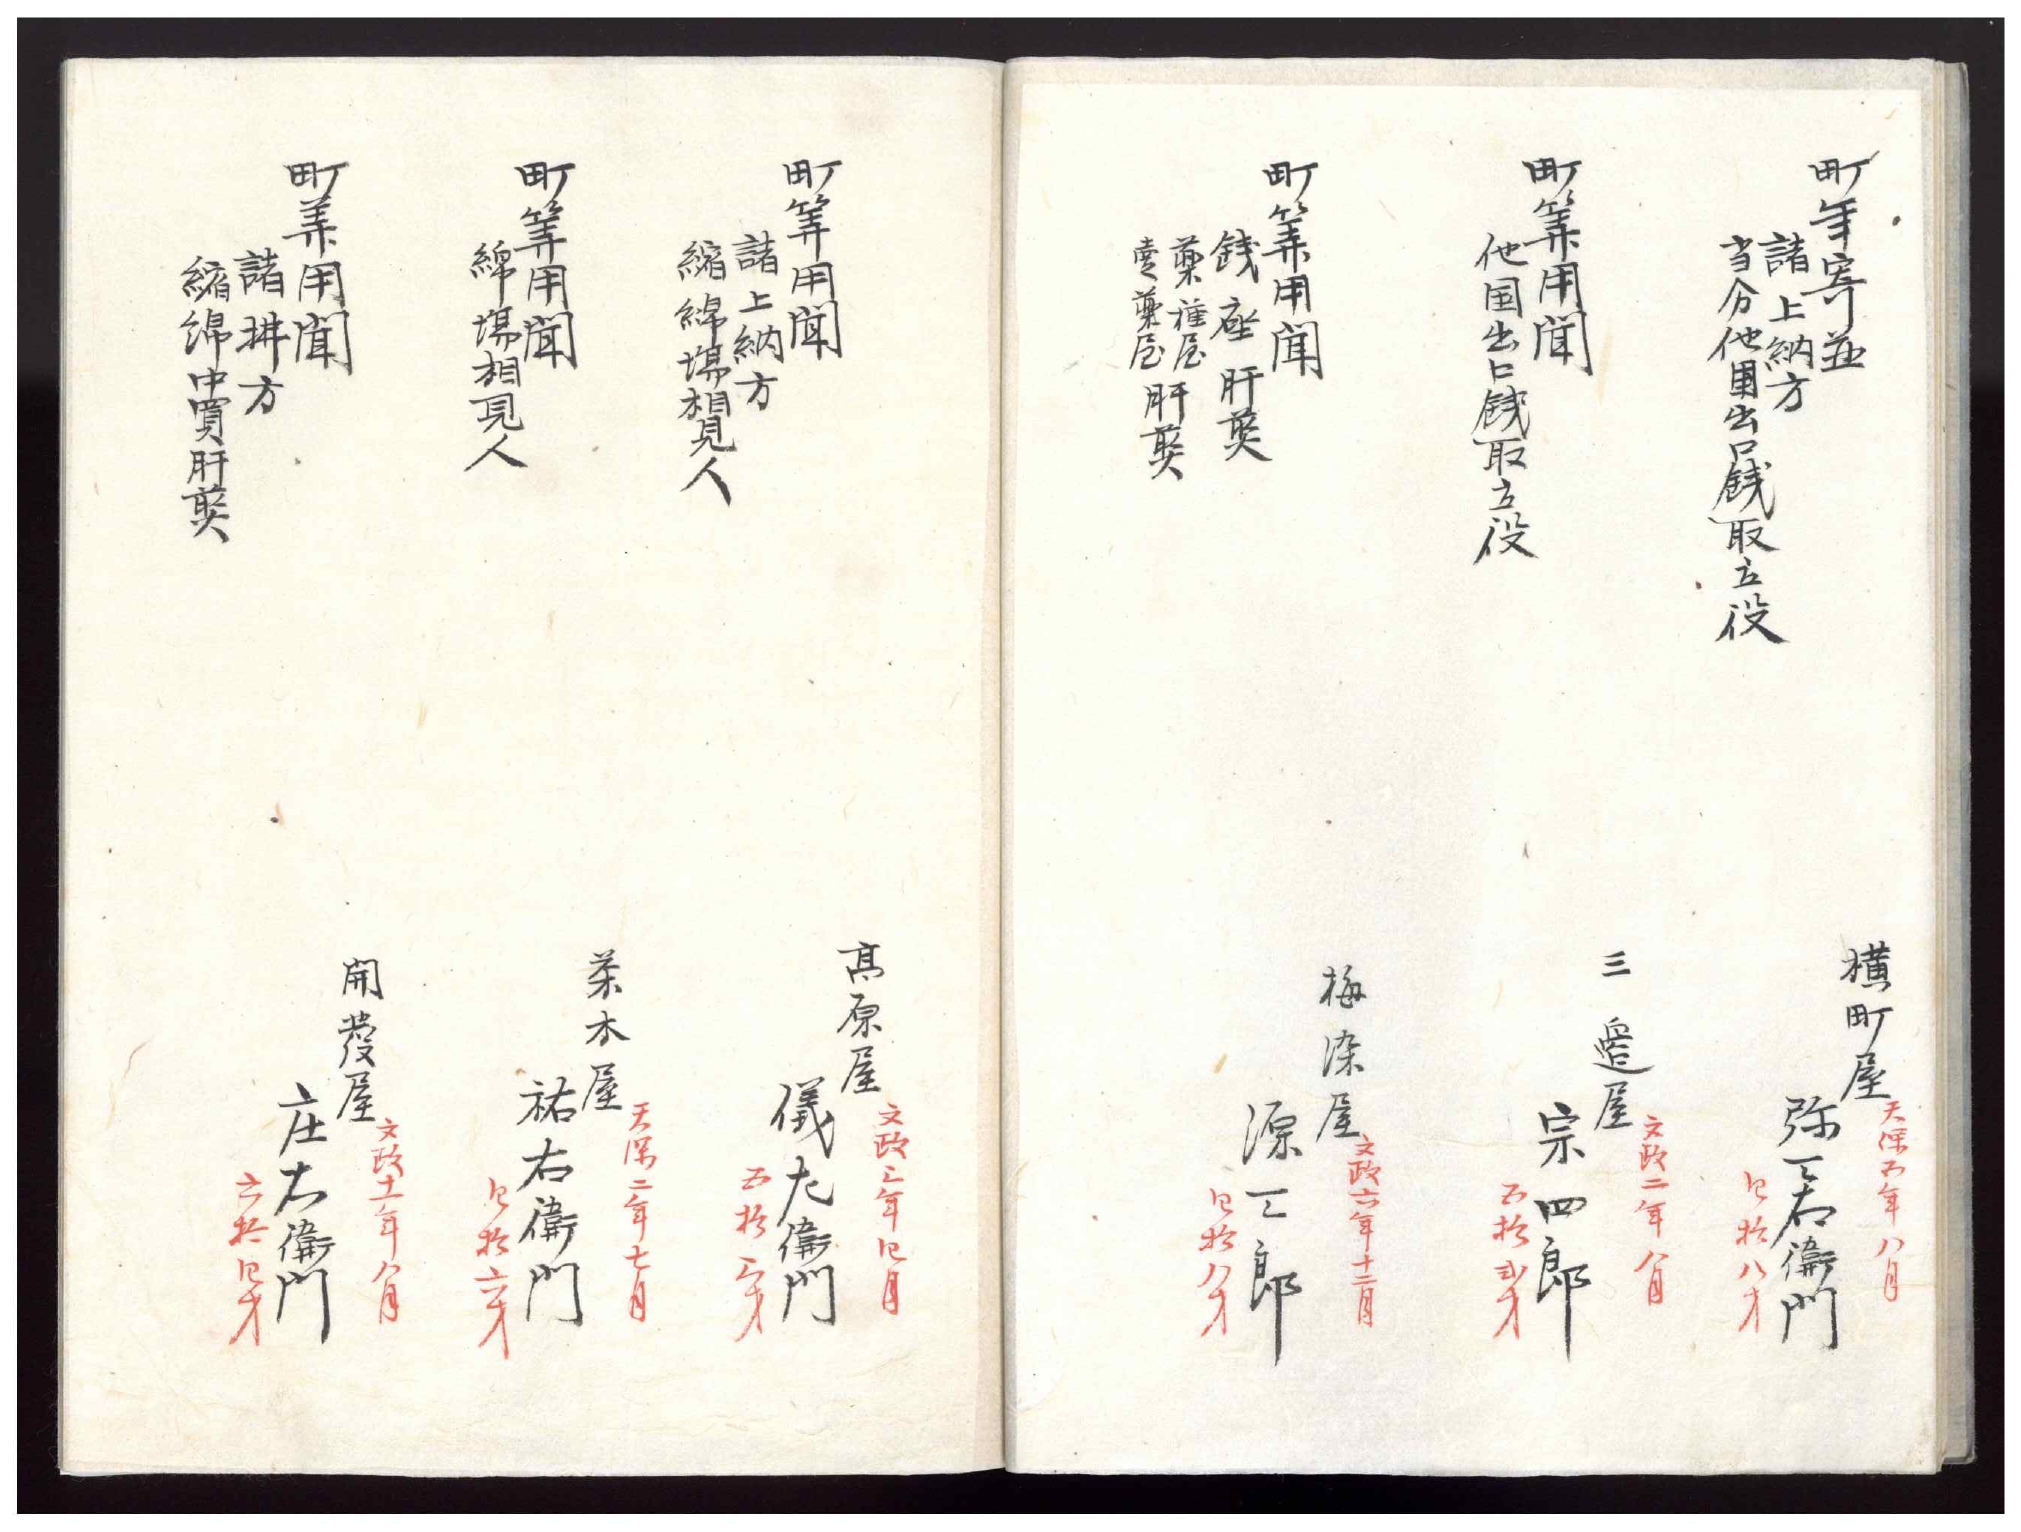 町年寄並
諸上納方
当分他国出口銭取立役
横町屋
天保五年八月
弥三右衛門
四拾八才
町筭用聞
他国出口銭取立役
三邊屋
文政二年八月
宗四郎
五拾弐才
町筭用聞
銭座肝煎
薬種屋
売薬屋肝煎
梅染屋
文政六年十二月
源三郎
四拾八才
町筭用聞
諸上納方
縮綿場相見人
高原屋
文政三年四月
儀左衛門
五拾三才
町筭用聞
綿場相見人
茶木屋
天保二年七月
祐右衛門
四拾六才
町筭用聞
諸払方
縮綿中買肝煎
開發屋
文政十一年八月
庄右衛門
六拾四才